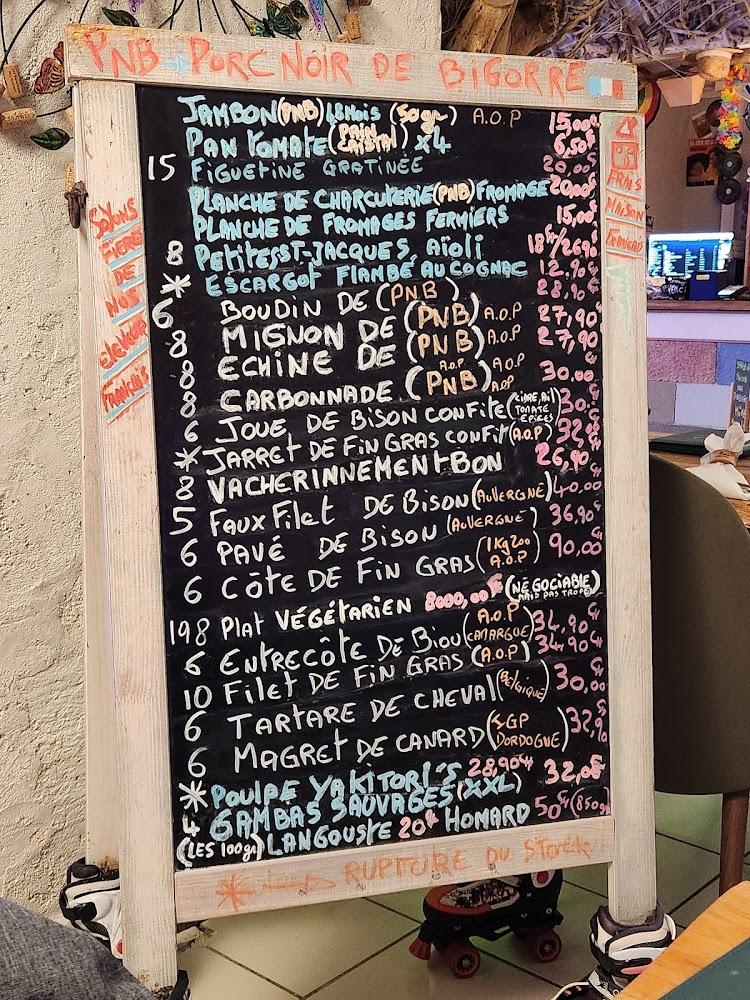 PNB → PORC NOIR DE BIGORRE
JAMBON (PNB) 48 MOIS (50gr) A.O.P 15,00€
PAN TOMATE (PAIN CRISTAL) X4 6,50€
15 FIGUETINE GRATINÉE 20,00€
PLANCHE DE CHARCUTERIE (PNB) FROMAGE 20,00€
PLANCHE DE FROMAGES FERMIERS 15,00€
8 PETITES ST-JACQUES, AÏOLI 18€/26,90
* ESCARGOT FLAMBÉ AU COGNAC 12,90€
6 BOUDIN DE (PNB) 28,90€
8 MIGNON DE (PNB) A.O.P 27,90
8 ECHINE DE (PNB) A.O.P 27,90
8 CARBONNADE (PNB) A.O.P 30,00
6 JOUE DE BISON CONFITE 30,€
* JARRET DE FIN GRAS CONFIT (A.O.P) 32€
8 VACHERINNEMENT BON 26,90
5 FAUX FILET DE BISON (AUVERGNE) 40,00€
6 PAVÉ DE BISON (AUVERGNE) 36,90€
6 CÔTE DE FIN GRAS (1Kg200 A.O.P) 90,00€
198 PLAT VÉGÉTARIEN 8000,00€ (NÉGOCIABLE) MAIS PAS TROP
6 ENTRECÔTE DE BIOU (A.O.P CAMARGUE) 34,90€
10 FILET DE FIN GRAS (A.O.P) 34,90€
6 TARTARE DE CHEVAL (BELGIQUE) 30,00
6 MAGRET DE CANARD (IGP DORDOGNE) 32,90
* POULPE YAKITORI'S 28,90€
4 GAMBAS SAUVAGES (XXL) 32,00€
(LES 100gr) LANGOUSTE 20€ HOMARD 50€ (850gr)
* RUPTURE DU STOCK
SOYONS
FIERE
DE
NOS
ELEVEUR
FRANÇAIS
FRAIS
MAISON
FRANÇAIS